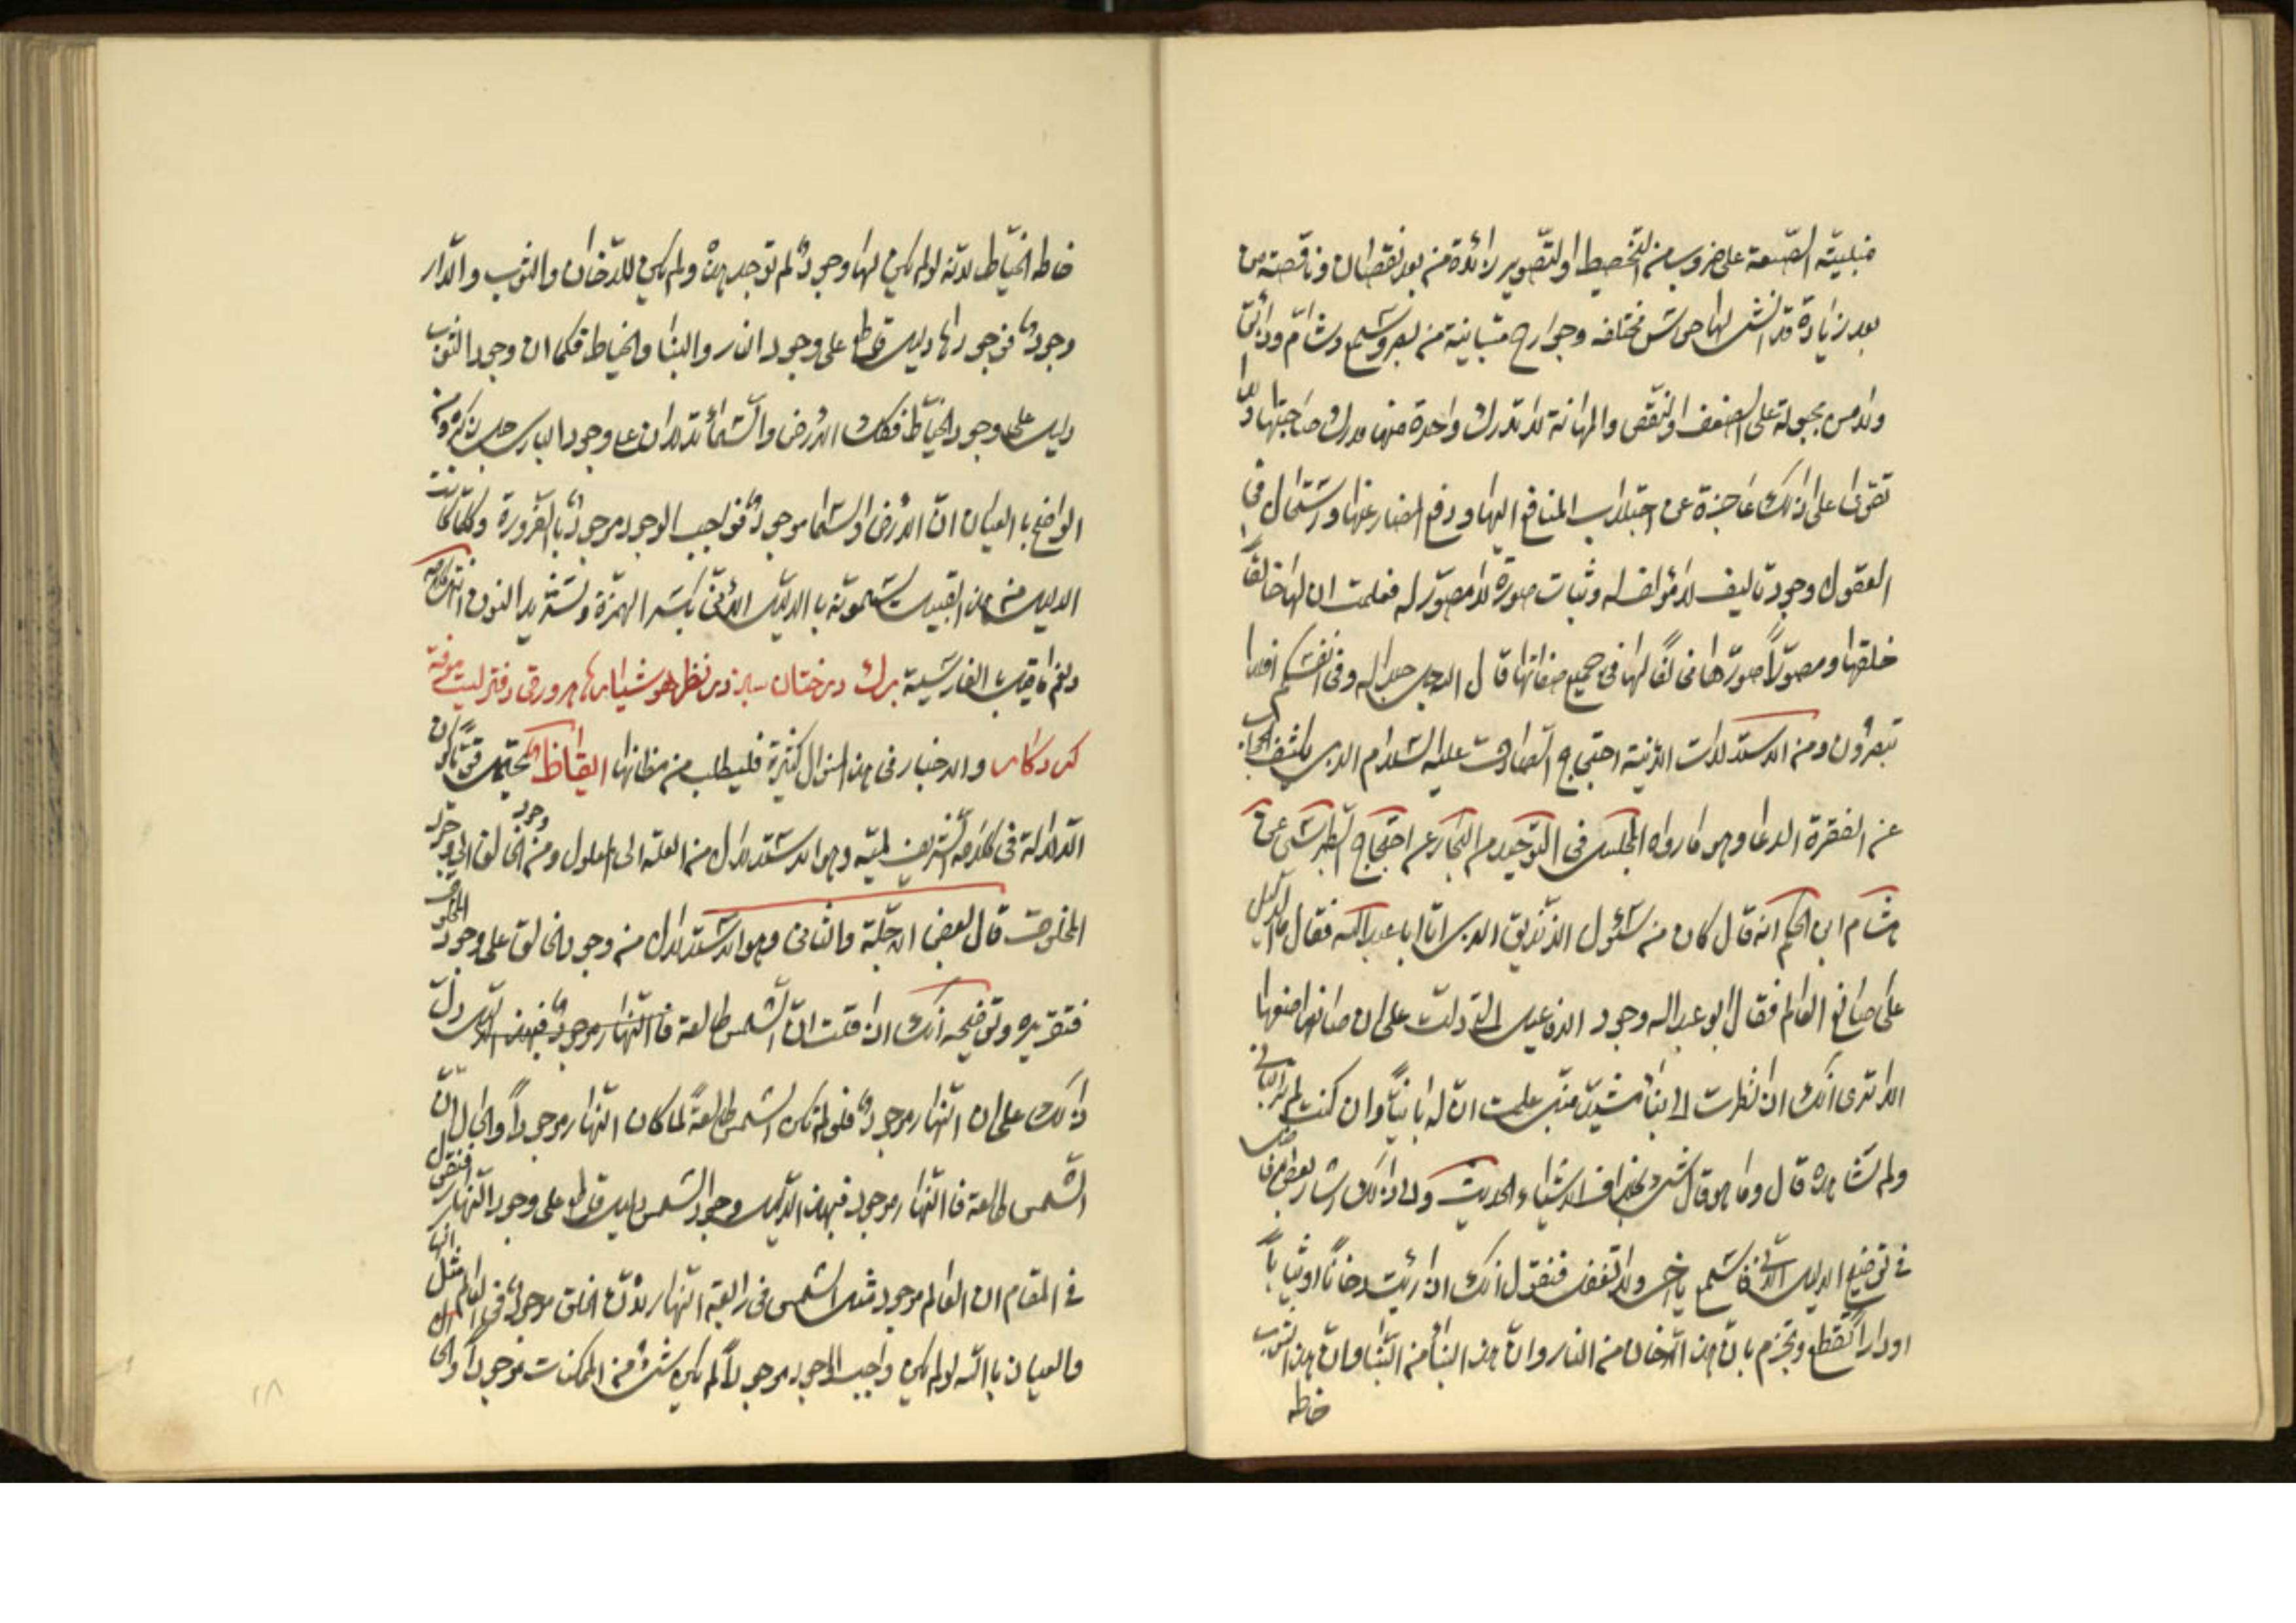 مبلیته الصنعة علی ضروب من التخصیط والتصویر زائدة من بعد نقصان وناقصة من
بعد زیادة قد انشئ لها حواس مختلفه وجوارح متباینة من بصر وسمع وشام وذائق
ولامس مجبولة علی الضعف والنقص والمهانة لا تدرک واحدة منها مدرک صاحبتها ولا
تقوی علی ذلک عاجزة عن اجتلاب المنافع الیها ودفع المضار عنها واستحال فی
العقول وجود تالیف لا مؤلف له وثبات صورة لا مصور له فعلمت ان لها خالقا
خلقها ومصورا صورها مخالفا لها فی جمیع صفاتها قال الله جل جلاله وفی انفسکم افلا
تبصرون ومن الاستدلالات الانیة احتجاج الصادق علیه السلام الذی
عن الفقرة الدعا وهو ما رواه المجلسی فی التوحید من البحار عن احتجاج الطبرسی عن
هشام ابن الحکم انه قال کان من سئول الزندیق الذی اتی ابا عبدالله فقال ما الدلیل
علی صانع العالم فقال ابو عبدالله وجود الافاعیل التی دلت علی ان صانعها صنعها
الا تری انک اذا نظرت الی بناء مشید مبنی علمت ان له بانیا وان کنت لم تر البانی
ولم تشاهده قال وما هو قال شیء بخلاف الاشیاء الحدیث والی ذلک اشار بعض
فی توضیح الدلیل الانی فاسمع یا اخی ولا تغفل فنقول انک اذا رایت دخانا او ثیابا
او دارا تقطع وتجزم بان هذا الدخان من النار وان هذا البناء من البنا وان هذا الثوب
خاطه
خاطه الخیاط لانه لو لم یکن لها وجود لم توجد هذه ولم یکن للدخان والثوب والدار
وجود فوجودها دلیل قاطع علی وجود النار والبنا والخیاط فکما ان وجود الثوب
دلیل علی وجود الخیاط فکذلک الارض والسماء تدلان علی وجود الباری جل ذکره ومن
الواضح بالعیان ان الارض والسما موجود فواجب الوجود موجود بالضرورة وکلما کانت
الدلیل من هذا القبیل یسمونه بالدلیل الانی بکسر الهمزة وتشدید النون انتهی کلامه
ونعم ما قیل بالفارسیة برک درختان سبز در نظر هوشیار هر ورقی دفتریست معرفة
کردکار والاخبار فی هذا المنوال کثیرة فلیطلب من مظانها ایقاظ یحتمل قویا کون
الدلالة فی کلامه الشریف لمیه وهو الاستدلال من العلة الی المعلول ومن وجود الخالق الی وجود
المخلوق قال بعض الاجلة والثانی وهو الاستدلال من وجود الخالق علی وجود المخلوق
فتقریره وتوضیحه انک اذا قلت ان الشمس طالعة فالنهار موجود فبهذا الدلیل دل
ذلک علی ان النهار موجود فلو لم تکن الشمس طالعة لما کان النهار موجودا والحال ان
الشمس طالعة فالنهار موجود فبهذا الدلیل وجود الشمس دلیل قاطع علی وجود النهار فنقول
فی المقام ان العالم موجود مثل الشمس فی رابعة النهار لان الخلق موجود فی العالم
والعیاذ بالله لو لم یکن واجب الوجود موجودا لم یکن شیء من الممکنات موجودا والحال